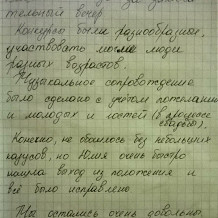 за замеча-
тельный вечер
Конкурсы были разнообразные,
участвовать могли люди
разных возрастов.
Музыкальное сопровождение
было сделано с учётом пожеланий
и молодых и гостей (в процессе
свадьбы).
Конечно, не обошлось без небольших
казусов, но Юлия очень быстро
нашла выход из положения и
всё было исправлено
Мы остались очень довольны